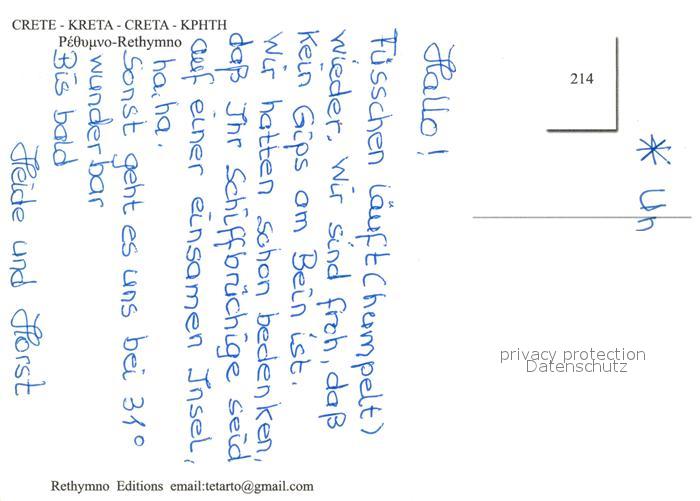 CRETE - KRETA - CRETA - ΚΡΗΤΗ
Ρέθυμνο-Rethymno
214
Hallo!
Füsschen läuft (humpelt)
wieder. Wir sind froh, daß
kein Gips am Bein ist.
Wir hatten schon bedenken,
daß Ihr Schiffbrüchige seid
auf einer einsamen Insel,
haha.
Sonst geht es uns bei 31°
wunderbar
Bis bald
Heide und Horst
* Un
privacy protection
Datenschutz
Rethymno Editions email:tetarto@gmail.com